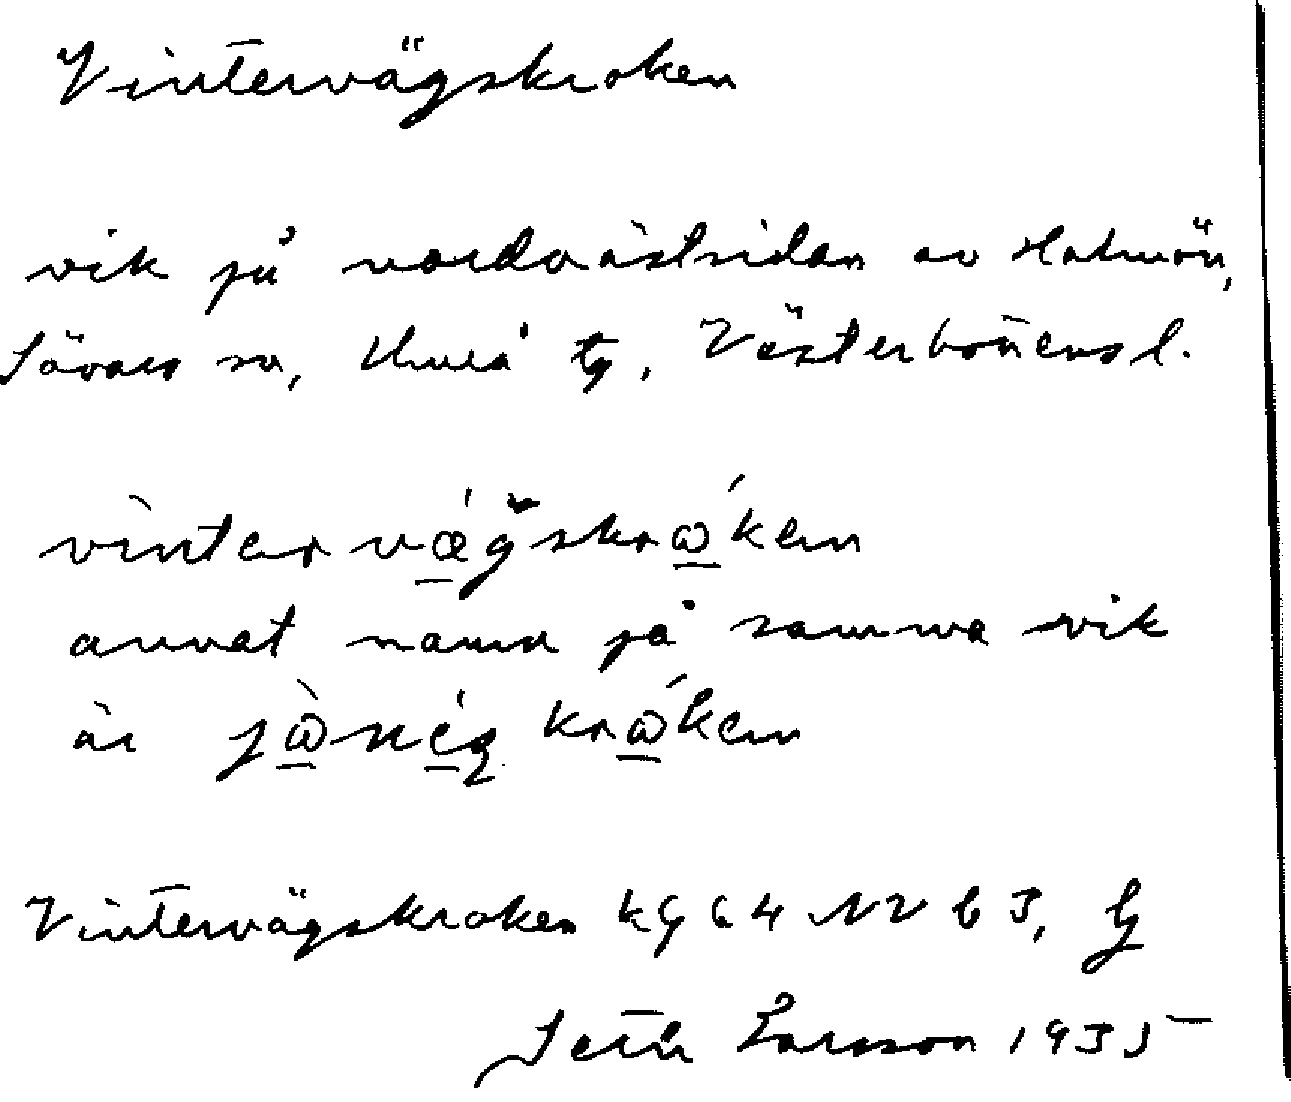 Vintervägskroken
vik på nordvästsidan av Holmön,
Sävars sn, Umeå tg, Västerbottens l.
vinter vægskrωken
annat namn på samma vik
är jωneŋ krωken
Vintervägskroken kg 64 NV b 3,
Seth Larsson 1935